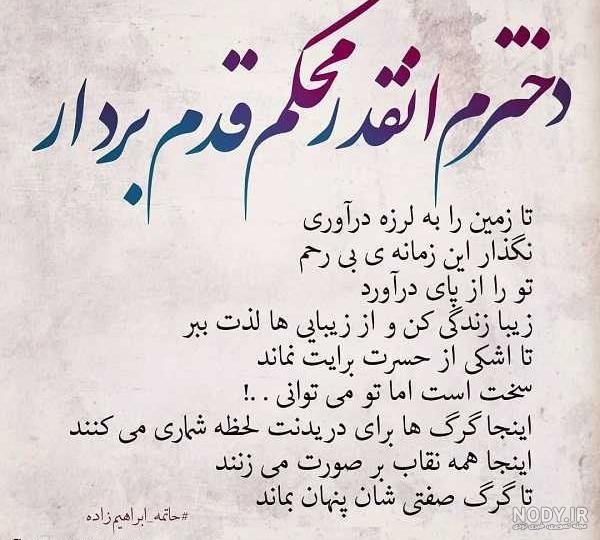 دخترم انقدر محکم قدم بردار
تا زمین را به لرزه درآوری
نگذار این زمانه ی بی رحم
تو را از پای درآورد
زیبا زندگی کن و از زیبایی ها لذت ببر
تا اشکی از حسرت برایت نماند
سخت است اما تو می توانی . .!
اینجا گرگ ها برای دریدنت لحظه شماری می کنند
اینجا همه نقاب بر صورت می زنند
تا گرگ صفتی شان پنهان بماند
#حاتمه_ابراهیم‌زاده
NODY.IR